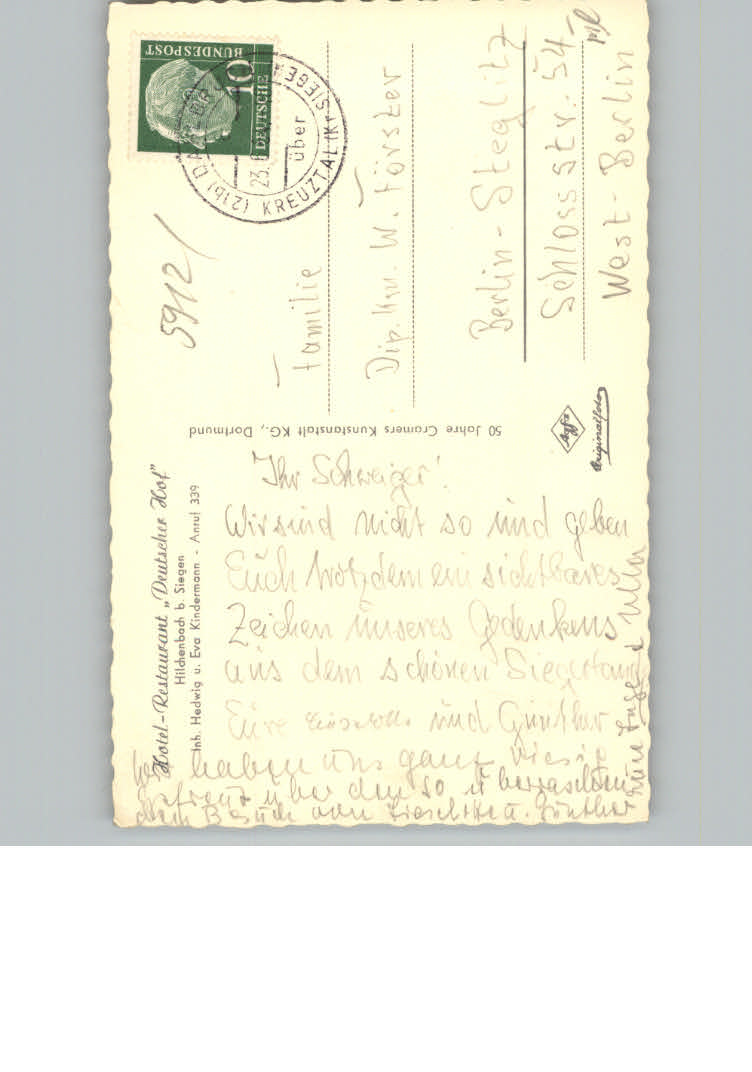 Hotel-Restaurant „Deutscher Hof"
Hilchenbach b. Siegen
Inh. Hedwig u. Eva Kindermann - Anruf 339
Ihr Schweiger!
Wir sind nicht so und geben
Euch trotzdem ein sichtbares
Zeichen unseres Gedenkens
aus dem schönen Siegerland
Eure und Günther
Wir haben uns ganz riesig
gefreut über den so überraschen
den Besuch von Günther
50 Jahre Cramers Kunstanstalt KG., Dortmund
5912/
DEUTSCHE
BUNDESPOST
10
(21b)
über
KREUZTAL (Kr. SIEGEN)
23.
Familie
Dip. Kfm. W. Förster
Berlin-Steglitz
Schlossstr. 54
West-Berlin
Agfa
Originalfoto